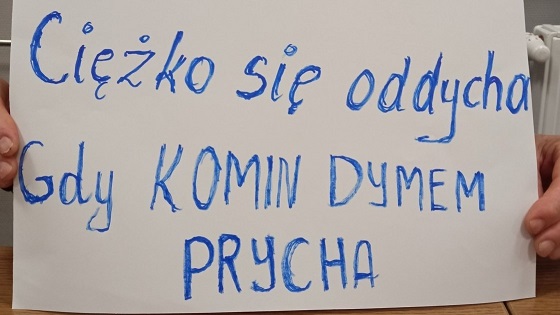 Ciężko się oddycha
Gdy KOMIN DYMEM
PRYCHA